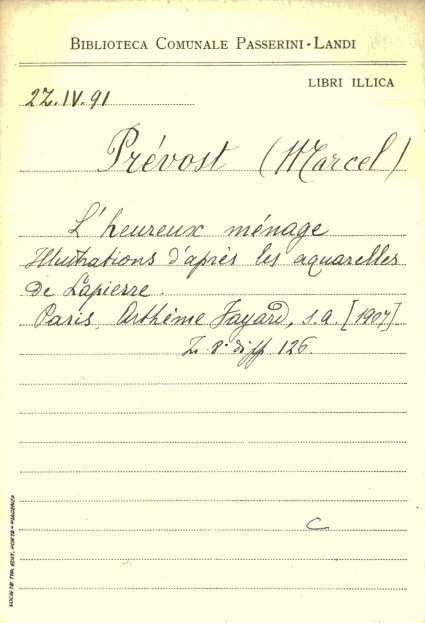 BIBLIOTECA COMUNALE PASSERINI-LANDI
LIBRI ILLICA
2Z.IV.91
Prévost (Marcel)
L'heureux ménage
Illustrations d'après les aquarelles
de Lapierre.
Paris, Arthème Fayard, s.a. [1907]
Z. 8° diff. 126.
C
SOCIETÀ TIP. EDIT. PORTA - PIACENZA